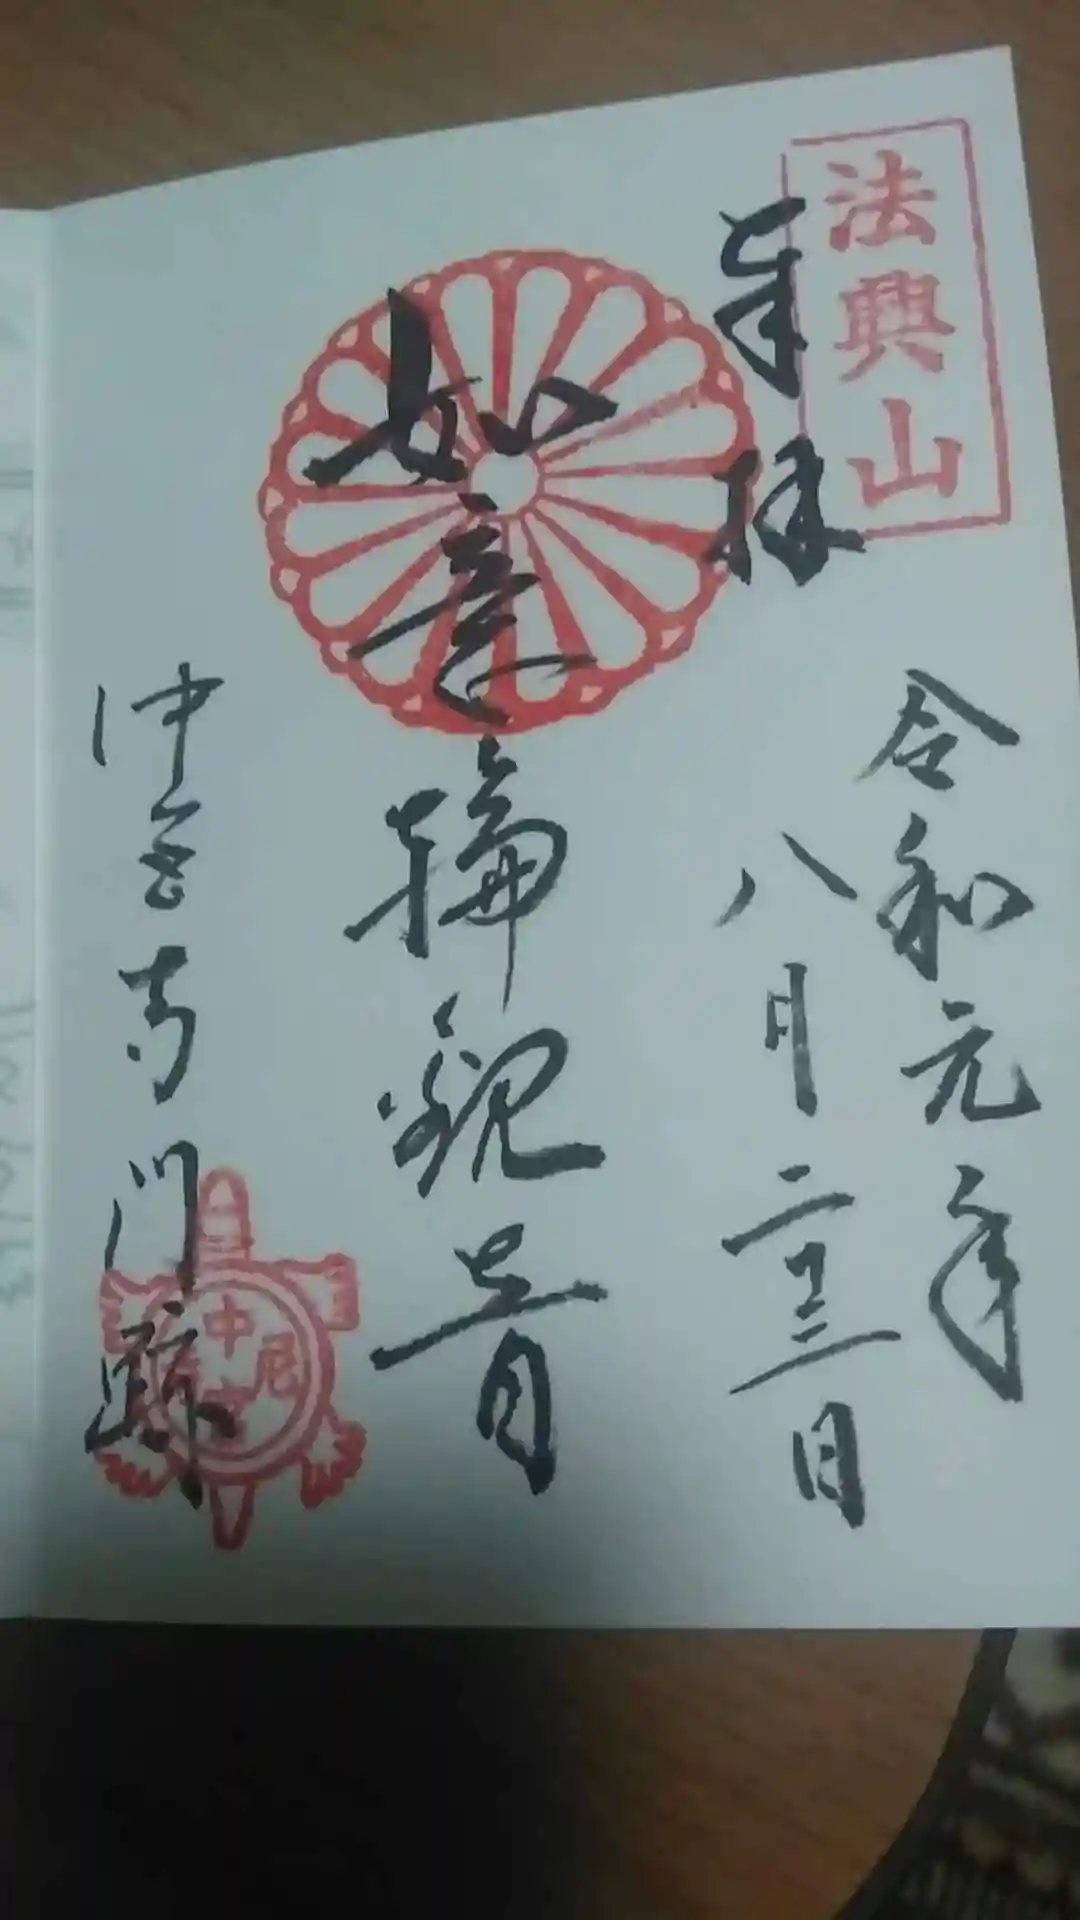 法興山
奉拝
令和元年
八月二十三日
如意輪観音
中宮寺門跡
中
尼